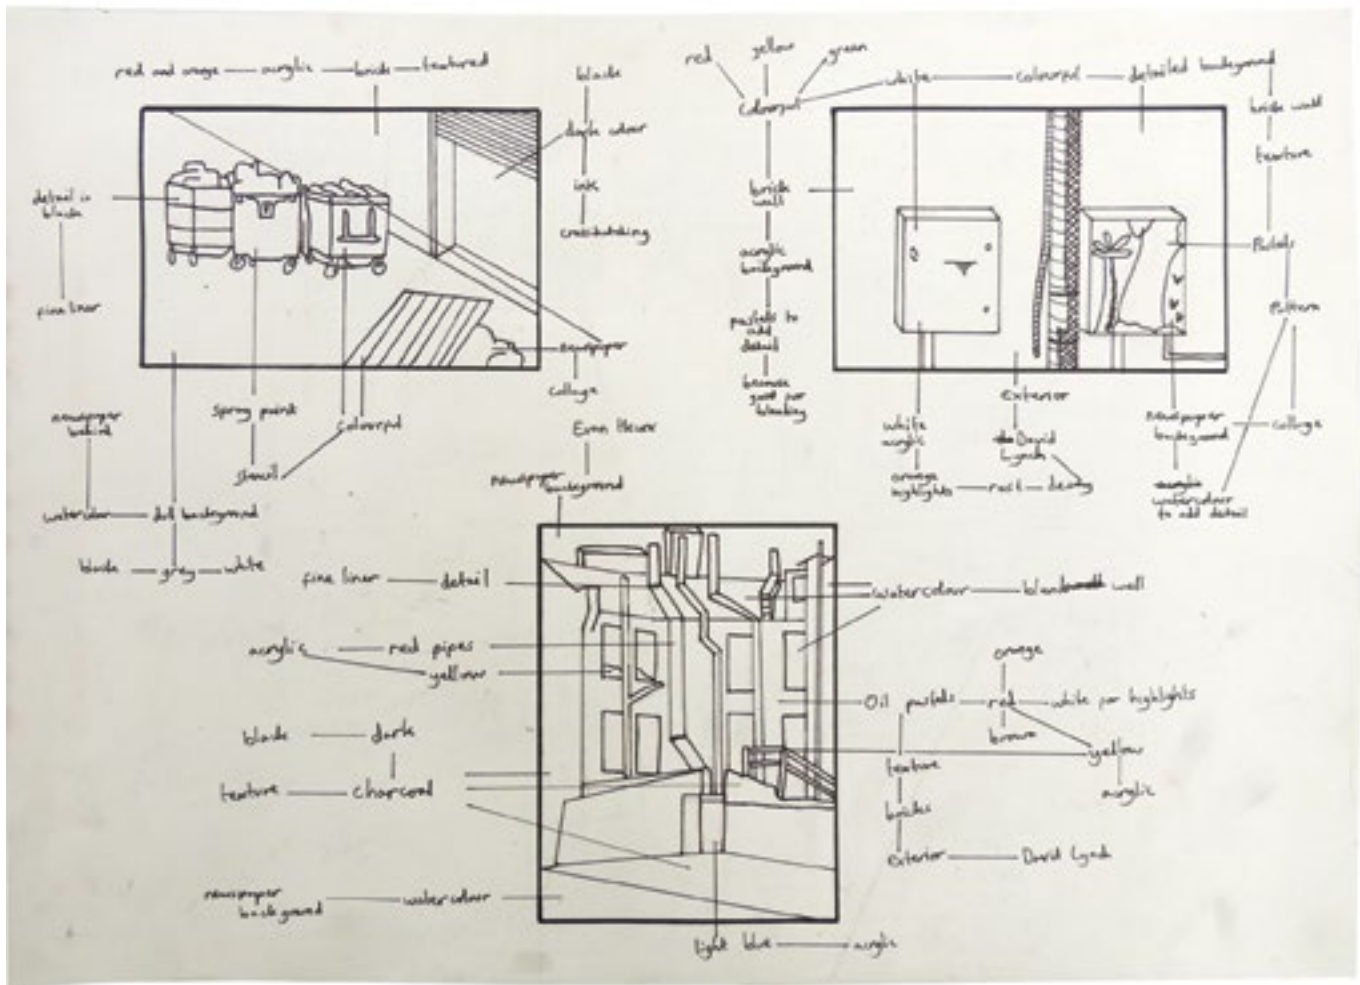 red and orange — acrylic — brick — textured
black
dark colour
ink
crosshatching
detail in
black
fine liner
newspaper
collage
spray paint
colourful
stencil
newspaper
behind
watercolour — dull background
black — grey — white
red
yellow
green
colourful
white — colourful — detailed background
brick wall
texture
Pastels
Pattern
brick
wall
acrylic
background
pastels to
add
detail
because
good for
blending
exterior
white
acrylic
orange
highlights — rust — decay
David
Lynch
newspaper
background — collage
watercolour
to add detail
Evan
newspaper
background
fine liner — detail
acrylic — red pipes
yellow
black — dark
texture — charcoal
newspaper
background — watercolour
watercolour — wall
orange
Oil pastels — red — white for highlights
brown
yellow
acrylic
texture
bricks
exterior — David Lynch
light blue — acrylic